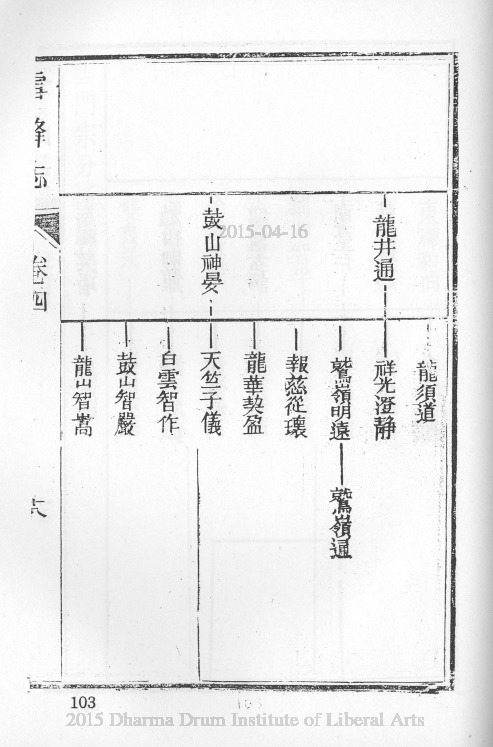 龍井通
鼓山神晏
龍須道
祥光澄靜
鷲嶺明遠
鷲嶺通
報慈從瓌
龍華契盈
天竺子儀
白雲智作
鼓山智嚴
龍山智嵩
雪峰志
卷四
103
2015-04-16
2015 Dharma Drum Institute of Liberal Arts